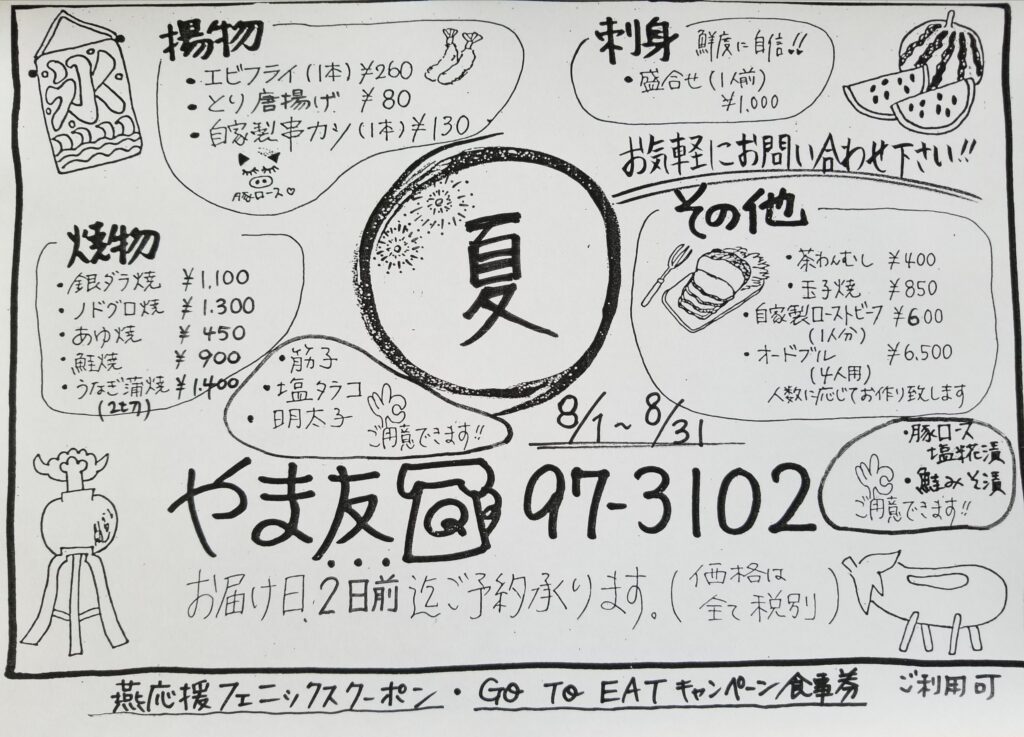 氷
揚物
・エビフライ(1本)¥260
・とり唐揚げ ¥80
・自家製串カツ(1本)¥130
豚ロース♡
刺身 鮮度に自信!!
・盛合せ(1人前)
¥1,000
お気軽にお問い合わせ下さい!!
夏
焼物
・銀ダラ焼 ¥1,100
・ノドグロ焼 ¥1,300
・あゆ焼 ¥450
・鮭焼 ¥900
・うなぎ蒲焼 ¥1,400
(2切)
・筋子
・塩タラコ
・明太子
ご用意できます!!
その他
・茶わんむし ¥400
・玉子焼 ¥850
・自家製ローストビーフ ¥600
(1人分)
・オードブル ¥6,500
(4人用)
人数に応じてお作り致します
8/1~8/31
・豚ロース
塩糀漬
・鮭みそ漬
ご用意できます!!
やま友 97-3102
お届け日、2日前迄ご予約承ります。(価格は
全て税別)
燕応援フェニックスクーポン・GO TO EATキャンペーン食事券 ご利用可